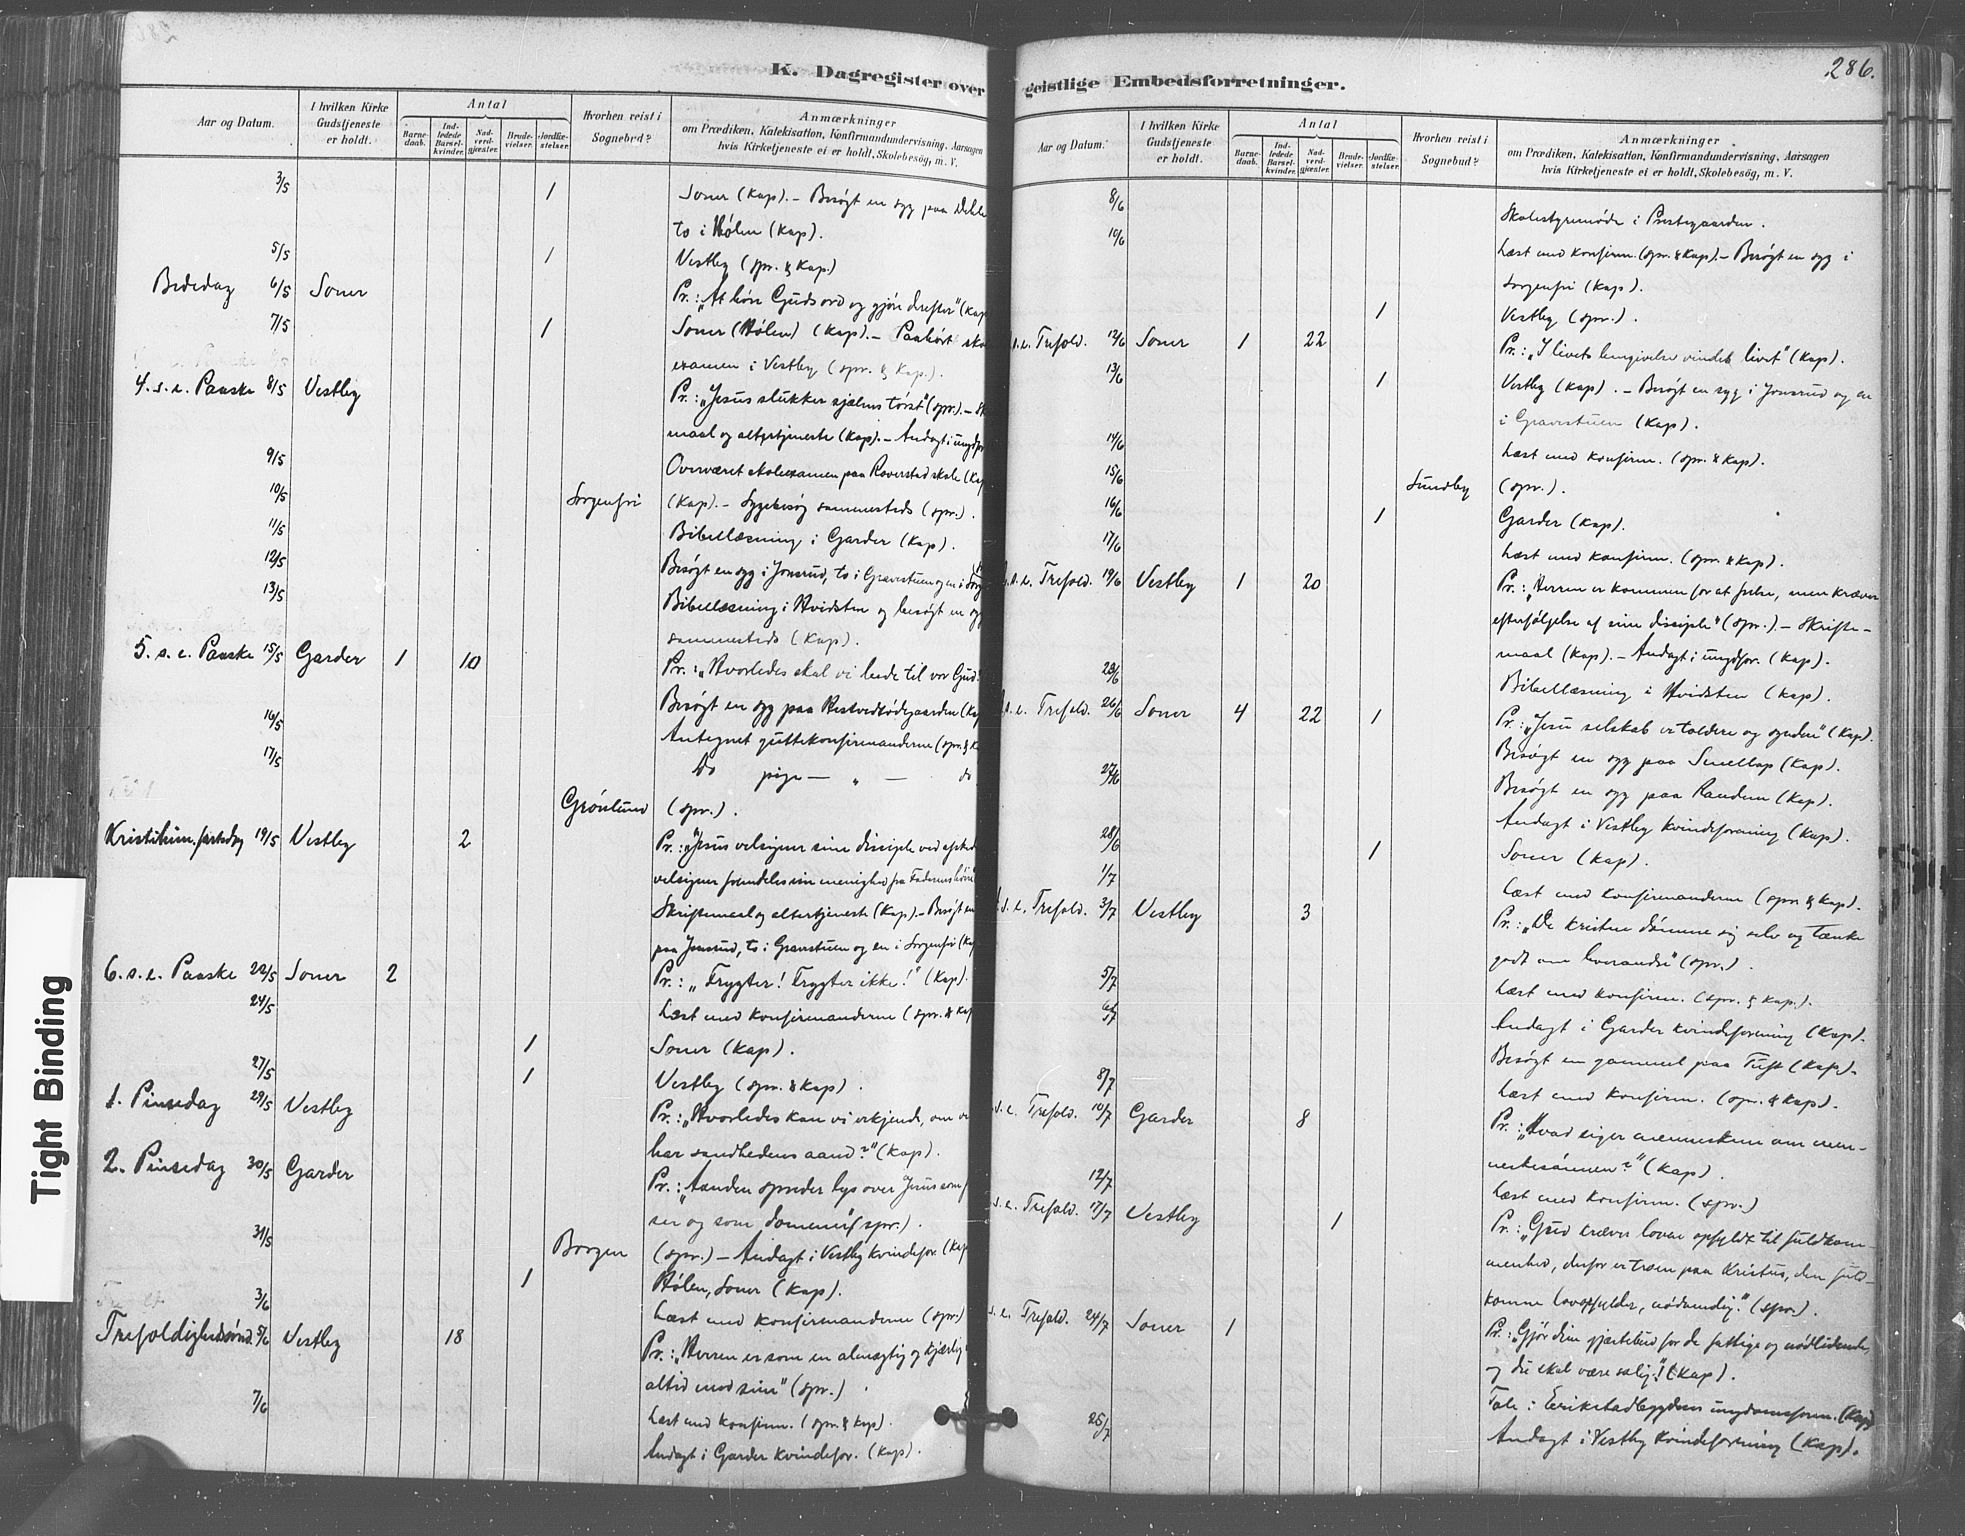 K. Dagregister over
Aar og Datum.
I hvilken Kirke Gudstjeneste er holdt.
Antal
Barne-daab.
Ind-ledede Barsel-kvinder.
Nad-verd-gjæster.
Brude-vielser.
Jordfæ-stelser.
Hvorhen reist i Sognebud?
Anmærkninger
om Prædiken, Katekisation, Konfirmandundervisning, Aarsagen
hvis Kirketjeneste ei er holdt, Skolebesøg, m. V.
3/5 1 Soner (Kap). – Besøgt en syg paa
to i Hølen (Kap).
5/5 1 Vestby (spr. & Kap)
Bededag 6/5 Soner Pr.: "At høre Guds ord og gjøre derefter" (Kap
7/5 1 Soner (Hølen) (Kap). – Paahørt
examen i Vestby (spr. & Kap).
4. s. e. Paaske 8/5 Vestby Pr.: "Jesus slukker sjælens tørst" (spr.). –
maal og altertjeneste (Kap). – Andagt i ungdf
9/5 Overværet skoleexamen paa Raverstad skole (Kap
10/5 Sorgenfri (Kap). – Sygebesøg sammesteds (spr.).
11/5 Bibellæsning i Garder (Kap).
12/5 Besøgt en syg i Jonsrud, to i Gravstuen og en i
13/5 Bibellæsning i Hvidsten og besøgt en
sammesteds (Kap).
5. s. e. Paaske 15/5 Garder 1 10 Pr.: "Hvorledes skal vi bede til vor Gud
Besøgt en syg paa Hestvedtødegaarden (Kap
16/5 Antegnet guttekonfirmanderne (spr. & K
17/5 Do pige – " – do
Grønlund (spr.).
Kristi him. fartsdag 19/5 Vestby 2 Pr.: "Jesus velsigner sine disciple ved
velsigner fremdeles sin menighed fra Faderens høire
Skriftemaal og altertjeneste (Kap). – Besøgt en
paa Jonsrud, to i Gravstuen og en i Sorgenfri (Kap
6. s. e. Paaske 22/5 Soner 2 Pr.: "Frygter! Frygter ikke!" (Kap).
24/5 Læst med konfirmanderne (spr. & Kap
1 Soner (Kap).
27/5 1 Vestby (spr. & Kap).
1. Pinsedag 29/5 Vestby Pr.: "Hvorledes kan vi erkjende, om vi
har sandhedens aand?" (Kap).
2. Pinsedag 30/5 Garder Pr.: "Aanden spreder lys over Jesus som
ser og som (spr.).
31/5 Borgen (spr.) – Andagt i Vestby kvindefor. (Kap
1 Hølen, Soner (Kap).
3/6 Læst med konfirmanderne (spr.)
Trefoldighedssønd. 5/6 Vestby 18 Pr.: "Herren er som en almægtig og kjærlig
altid med sine" (spr.)
7/6 Læst med konfirm. (spr. & Kap).
Andagt i Garder kvindefor. (Kap).
geistlige Embedsforretninger.
286.
Aar og Datum.
I hvilken Kirke Gudstjeneste er holdt.
Antal
Barne-daab.
Ind-ledede Barsel-kvinder.
Nad-verd-gjæster.
Brude-vielser.
Jordfæ-stelser.
Hvorhen reist i Sognebud?
Anmærkninger
om Prædiken, Katekisation, Konfirmandundervisning, Aarsagen
hvis Kirketjeneste ei er holdt, Skolebesøg, m. V.
8/6 Skolestyremøde i Prestegaarden.
10/6 Læst med konfirm. (spr. & Kap). – Besøgt en syg i
Sorgenfri (Kap).
1 Vestby (spr.).
s. e. Trefold. 12/6 Soner 1 22 Pr.: "I livets hengivelse vindes livet" (Kap).
13/6 1 Vestby (Kap). – Besøgt en syg i Jonsrud og en
i Gravstuen (Kap).
14/6 Læst med konfirm. (spr. & Kap).
15/6 Sundby (spr.).
16/6 1 Garder (Kap).
17/6 Læst med konfirm. (spr. & Kap).
s. e. Trefold. 19/6 Vestby 1 20 Pr.: "Herren er kommen for at frelse, men kræver
efterfølgelse af sine disciple" (spr.). – Skrifte-
maal (Kap). – Andagt i ungdfor. (Kap).
23/6 Bibellæsning i Hvidsten (Kap).
s. e. Trefold. 26/6 Soner 4 22 1 Pr.: "Jesu selskab er toldere og syndere" (Kap).
Besøgt en syg paa Smellop (Kap).
27/6 Besøgt en syg paa Randem (Kap).
Andagt i Vestby kvindeforening (Kap).
28/6 1 Soner (Kap).
1/7 Læst med konfirmanderne (spr. & Kap).
s. e. Trefold. 3/7 Vestby 3 Pr.: "De kristne dømme sig selv og tænke
godt om hverandre" (spr.).
5/7 Læst med konfirm. (spr. & Kap.).
6/7 Andagt i Garder kvindeforening (Kap).
Besøgt en gammel paa Tuft (Kap).
8/7 Læst med konfirm. (spr. & Kap).
s. e. Trefold. 10/7 Garder 8 Pr.: "Hvad siger menneskene om men-
neskesønnen?" (Kap).
12/7 Læst med konfirm. (spr.)
s. e. Trefold. 17/7 Vestby 1 Pr.: "Gud kræver loven opfyldt til fuldkom-
menhed, derfor er troen paa Kristus, den fuld-
komne lovopfylder, nødvendig." (spr.).
s. e. Trefold. 24/7 Soner 1 Pr.: "Gjør dine gjæstebud for de fattige og nødlidende,
og du skal være salig!" (Kap).
Tale: Erikstadbygdens ungdomsforen. (Kap)
25/7 Andagt i Vestby kvindeforening (Kap).
Tight Binding